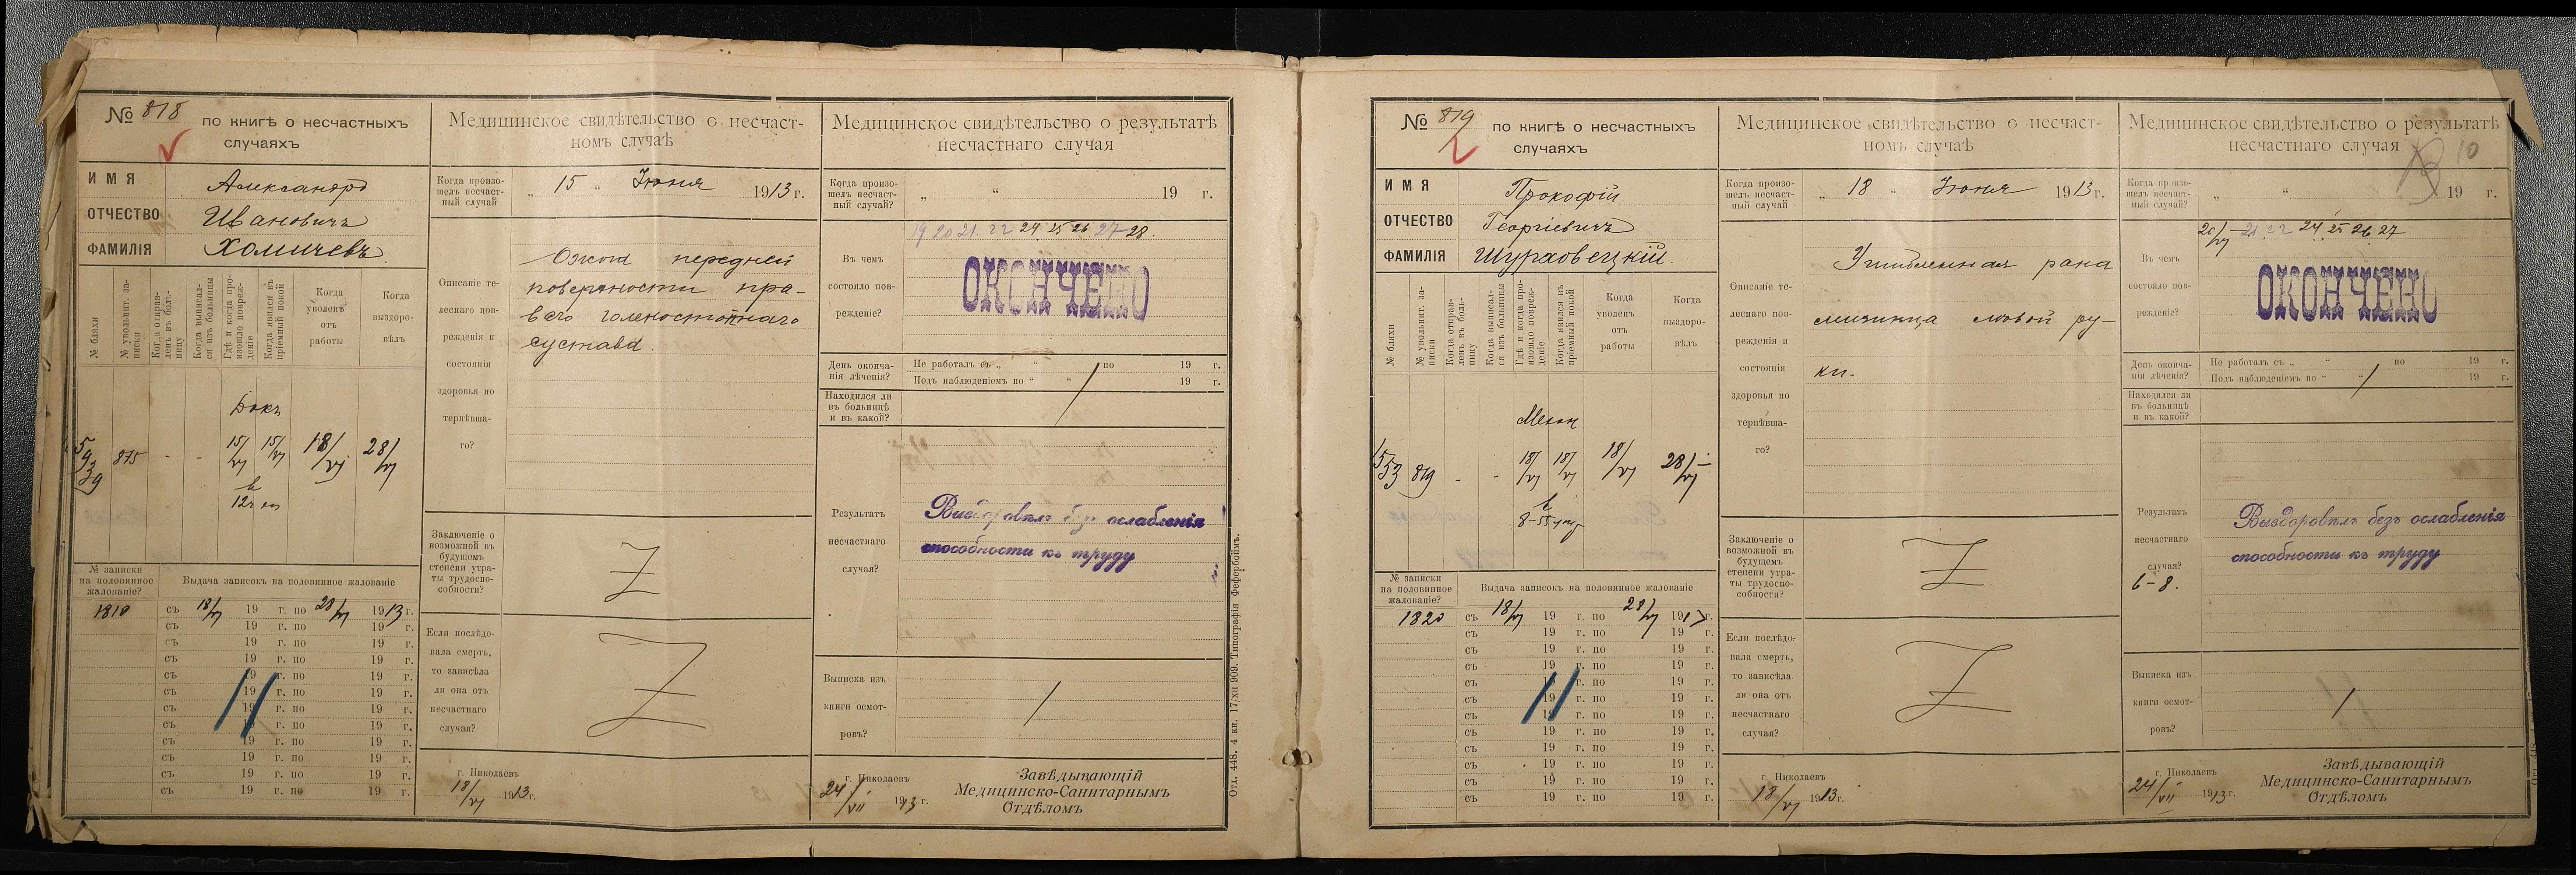 № 818 по книгѣ о несчастныхъ
случаяхъ
ИМЯ Александръ
ОТЧЕСТВО Ивановичъ
ФАМИЛІЯ Хомичевъ
№ бляхи
№ увольнит. записки
Когда отправленъ въ больницу
Когда выписался изъ больницы
Гдѣ и когда произошло поврежденіе
Когда явился въ пріемный покой
Когда
уволенъ
отъ
работы
Когда
выздоро-
вѣлъ
Докъ
5939 875 - - 15/VI 15/VI 18/VI 28/VI
в
№ записки
на половинное
жалованіе?
Выдача записокъ на половинное жалованіе
1818 съ 18/VI 19 г. по 28/VI 1913 г.
съ 19 г. по 19 г.
съ 19 г. по 19 г.
съ 19 г. по 19 г.
съ 19 г. по 19 г.
съ 19 г. по 19 г.
съ 19 г. по 19 г.
съ 19 г. по 19 г.
съ 19 г. по 19 г.
съ 19 г. по 19 г.
съ 19 г. по 19 г.
съ 19 г. по 19 г.
Медицинское свидѣтельство о несчаст-
номъ случаѣ
Когда произо-
шелъ несчаст-
ный случай
„ 15 “ Іюня 1913 г.
Описаніе тѣ-
леснаго пов-
режденія и
состоянія
здоровья по
терпѣвша-
го?
Ожогъ передней
поверхности пра-
ваго голеностопнаго
сустава.
Заключеніе о
возможной въ
будущемъ
степени утра-
ты трудоспо-
собности?
Z
Если послѣдо-
вала смерть,
то зависѣла
ли она отъ
несчастнаго
случая?
Z
г. Николаевъ
18/VI 1913 г.
Медицинское свидѣтельство о результатѣ
несчастнаго случая
Когда произо-
шелъ несчаст-
ный случай?
„ “ 19 г.
19 20 21 22 24 25 26 27 28.
Въ чемъ
состояло пов-
режденіе?
ОКОНЧЕНО
День оконча-
нія лѣченія?
Не работалъ съ „ “ по 19 г.
Подъ наблюденіемъ по “ “ 19 г.
Находился ли
въ больницѣ
и въ какой?
Результатъ
несчастнаго
случая?
Выздоровѣлъ безъ ослабленія
способности къ труду
Выписка изъ
книги осмот-
ровъ?
г. Николаевъ
24/VII 1913 г.
Завѣдывающій
Медицинско-Санитарнымъ
Отдѣломъ
Отд. 448. 4 кн. 17/хи 909. Типографія Фефербоймъ.
№ 819 по книгѣ о несчастныхъ
случаяхъ
ИМЯ Прокофій
ОТЧЕСТВО Георгіевичъ
ФАМИЛІЯ Шурховецкій.
№ бляхи
№ увольнит. записки
Когда отправленъ въ больницу
Когда выписался изъ больницы
Гдѣ и когда произошло поврежденіе
Когда явился въ пріемный покой
Когда
уволенъ
отъ
работы
Когда
выздоро-
вѣлъ
Механ
553 819 - - 18/VI 18/VI 18/VI 28/VI
в
№ записки
на половинное
жалованіе?
Выдача записокъ на половинное жалованіе
1820 съ 18/VI 19 г. по 28/VI 1913 г.
съ 19 г. по 19 г.
съ 19 г. по 19 г.
съ 19 г. по 19 г.
съ 19 г. по 19 г.
съ 19 г. по 19 г.
съ 19 г. по 19 г.
съ 19 г. по 19 г.
съ 19 г. по 19 г.
съ 19 г. по 19 г.
съ 19 г. по 19 г.
съ 19 г. по 19 г.
Медицинское свидѣтельство о несчаст-
номъ случаѣ
Когда произо-
шелъ несчаст-
ный случай
„ 18 “ Іюня 1913 г.
Описаніе тѣ-
леснаго пов-
режденія и
состоянія
здоровья по
терпѣвша-
го?
Ушибленная рана
мизинца лѣвой ру-
ки.
Заключеніе о
возможной въ
будущемъ
степени утра-
ты трудоспо-
собности?
Z
Если послѣдо-
вала смерть,
то зависѣла
ли она отъ
несчастнаго
случая?
Z
г. Николаевъ
18/VI 1913 г.
Медицинское свидѣтельство о результатѣ
несчастнаго случая
10
Когда произо-
шелъ несчаст-
ный случай?
„ “ 19 г.
20/VI 21 22 24 25 26 27
Въ чемъ
состояло пов-
режденіе?
ОКОНЧЕНО
День оконча-
нія лѣченія?
Не работалъ съ „ “ по 19 г.
Подъ наблюденіемъ по “ “ 19 г.
Находился ли
въ больницѣ
и въ какой?
Результатъ
несчастнаго
случая?
6-8.
Выздоровѣлъ безъ ослабленія
способности къ труду
Выписка изъ
книги осмот-
ровъ?
г. Николаевъ
24/VII 1913 г.
Завѣдывающій
Медицинско-Санитарнымъ
Отдѣломъ